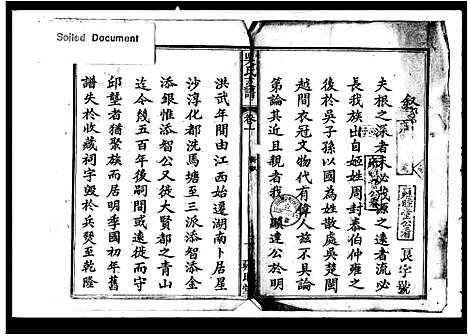 Soiled Document
叙
敦睦堂公譜
良字號
夫根之深者末必茂源之遠者流必
長我族出自姬姓周封泰伯仲雍之
後於吳子孫以國為姓散處吳楚閩
越間衣冠文物代有偉人茲不具論
第論其近且親者我
顯達公於明
吳氏支譜
卷一
洪武年間由江西始遷湖南卜居星
沙淳化都洗馬塘至三派添智添金
添銀惟添智公又徙大賢都之青山
迄今幾五百年後嗣間或遠徙而守
邱墾者猶聚族而居明季國初年舊
譜失於收藏祠宇毀於兵燹至乾隆